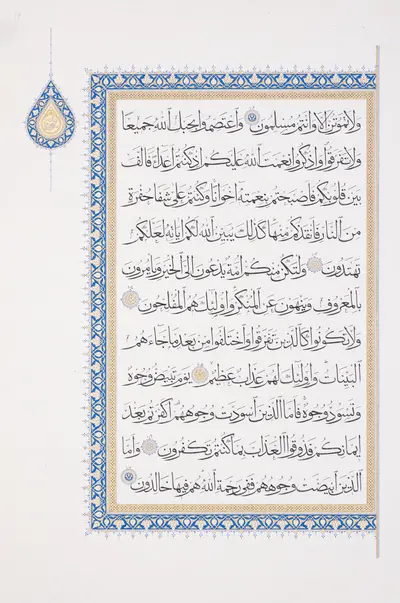 ولا تموتن إلا وأنتم مسلمون واعتصموا بحبل الله جميعا
ولا تفرقوا واذكروا نعمت الله عليكم إذ كنتم أعداء فألف
بين قلوبكم فأصبحتم بنعمته إخوانا وكنتم على شفا حفرة
من النار فأنقذكم منها كذلك يبين الله لكم آياته لعلكم
تهتدون ولتكن منكم أمة يدعون إلى الخير ويأمرون
بالمعروف وينهون عن المنكر وأولئك هم المفلحون
ولا تكونوا كالذين تفرقوا واختلفوا من بعد ما جاءهم
البينات وأولئك لهم عذاب عظيم يوم تبيض وجوه
وتسود وجوه فأما الذين اسودت وجوههم أكفرتم بعد
إيمانكم فذوقوا العذاب بما كنتم تكفرون وأما
الذين ابيضت وجوههم ففي رحمة الله هم فيها خالدون